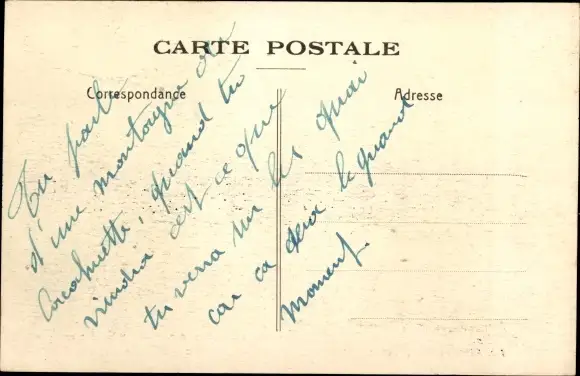 CARTE POSTALE
Correspondance
Adresse
Tu parle
d'une montagne de
Cacahuette, quand tu
viendra est ce que
tu vera sur les quai
car ca sera le grand
moment.